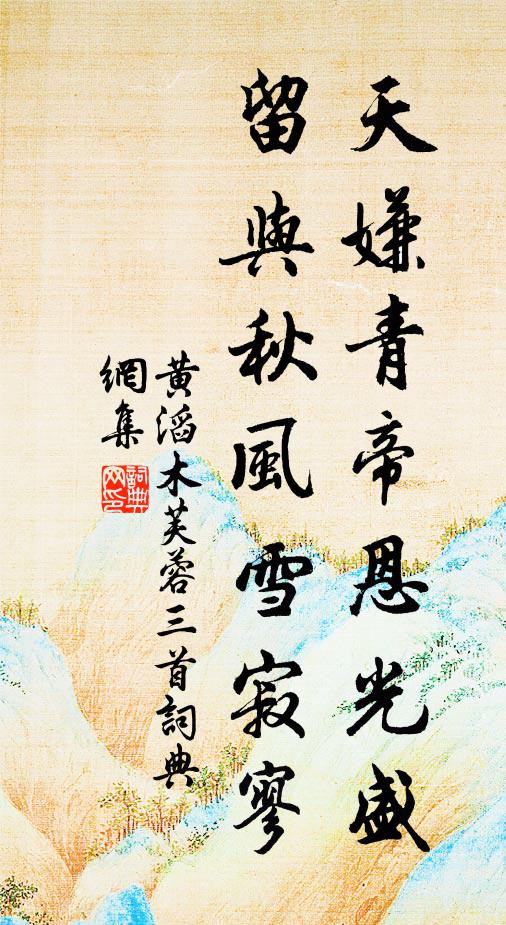 天嫌青帝恩光盛
留與秋風雪寂寥
黃滔木芙蓉三首詞典
網集
詞典
网印